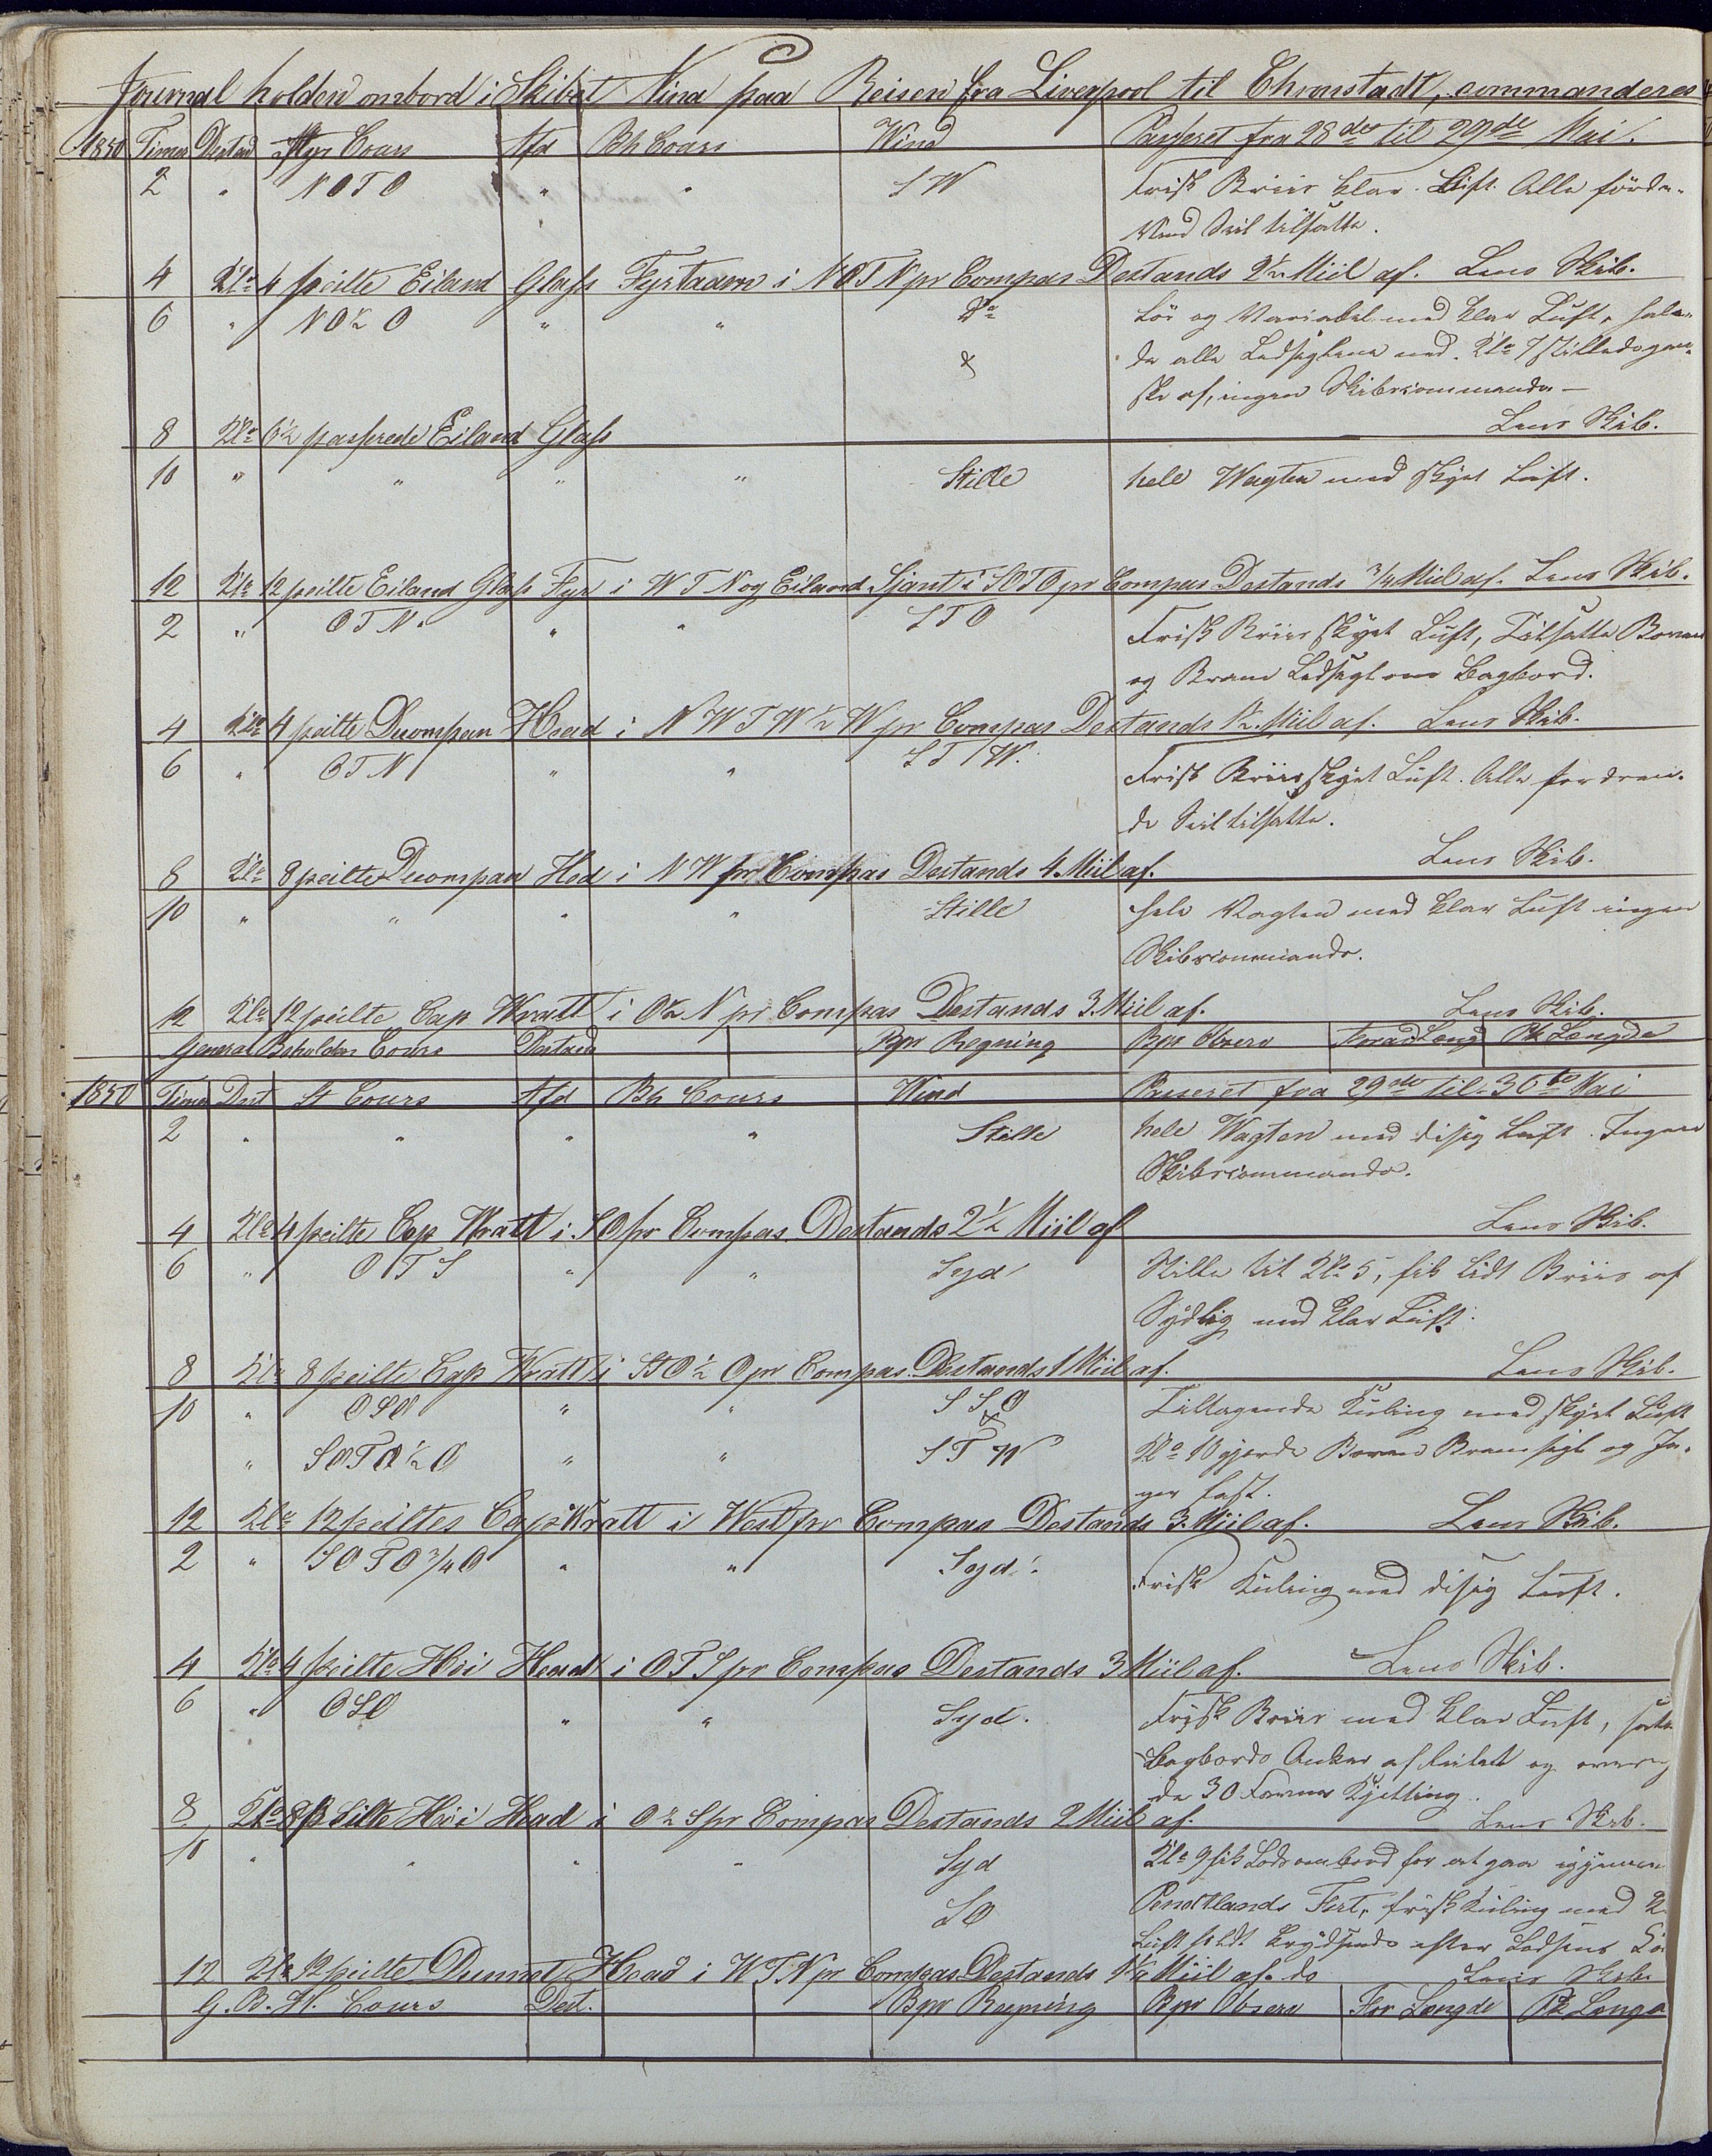 Journal holden ombord i Skibet Nina paa Reisen fra Liverpool til Chronstadt, commanderes
1850 Timer Destad Styr Cours Afd Bh Cours Wind Passeret fra 28de til 29de Mai.
2 " NOTO " " SW Frisk Briis klar Luft. Alle förde-
vend Seil tilsatte.
4 Klo 4 peilte Eiland Glass Fyrtaarn i NOTN pr Compas Destands 2½ Miil af. Lens Skib.
6 " NO½O " " Do Lös og Variabel med klar Luft, hale-
& de alle Ledseglene ned. Klo 7 stillede gan-
ske af, ingen Skibscommando.—
8 Klo 6½ passerede Eiland Glass Lens Skib.
10 " " " " Stille hele Wagten med skyet Luft.
12 Klo 12 peilte Eiland Glass Fyr i WTN og Eiland Sjant i SOTO pr Compas Destands ¾ Miil af. Lens Skib.
2 " OTN. " " STO Frisk Briis skyet Luft, Tilsatte Boven
og Bram Ledsegl om Bagbord.
4 Klo 4 peilte Dcompan Head i NWTW½W pr Compas Destands ½ Miil af. Lens Skib.
6 " OTN " " STW. Frisk Briis skyet Luft. Alle fordrven-
de Seil tilsatte.
8 Klo 8 peilte Decompan Hed i NW pr Compas Destands 4 Miil af. Lens Skib.
10 " " " " Stille hele Vagten med klar Luft ingen
Skibscommando.
12 Klo 12 peilte Cap Wratt i O½N pr Compas Destands 3 Miil af. Lens Skib.
General Beholden Cours Destad Bpr Regning Bpr Observ Forad Læng Pk Længde
1850 Timer Dest St Cours Afd Bh Cours Wind Passeret fra 29de til 30te Mai
2 " " " " Stille hele Wagten med disig Luft. Ingen
Skibscommando.
4 Klo 4 peilte Cap Wratt i SO pr Compas Destands 2½ Miil af Lens Skib.
6 " OTS " " Syd Stille til Klo 5, fik lidt Briis af
Sydlig med klar Luft.
8 Klo 8 peilte Cap Wratt i SO½O pr Compas Destands 1 Miil af. Lens Skib.
10 " OSO " " SSO Tiltagende Kuling med skyet Luft
" SOTO½O " " & STW Klo 10 gjorde Boven Bramsegl og Ja-
ger fast.
12 Klo 12 peiltes Cap Wratt i West pr Compas Destands 3 Miil af. Lens Skib.
2 " SOTO¾O " " Syd. Frisk Kuling med disig Luft.
4 Klo 4 peilte Hoi Head i OTS pr Compas Destands 3 Miil af. Lens Skib.
6 " OSO " " Syd. Frisk Briis med klar Luft, satte
Bagbords Anker af
de 30 Favner Kjetting.
8 Klo 8 peilte Hoi Head i O½S pr Compas Destands 2 Miil af. Lens Skib.
10 " " " " Syd Klo 9 fik Lods ombord for at gaa igjennem
SO Pendtlands Firt, frisk Kuling med
Luft holdt krydsende efter Lodsens
12 Klo 12 peilte Dunnet Head i WTN pr Compas Destands ½ Miil af. do Lens Skib.
G. B. H. Cours Dest. Bpr Regning Bpr Observ For Længde Pk Længd